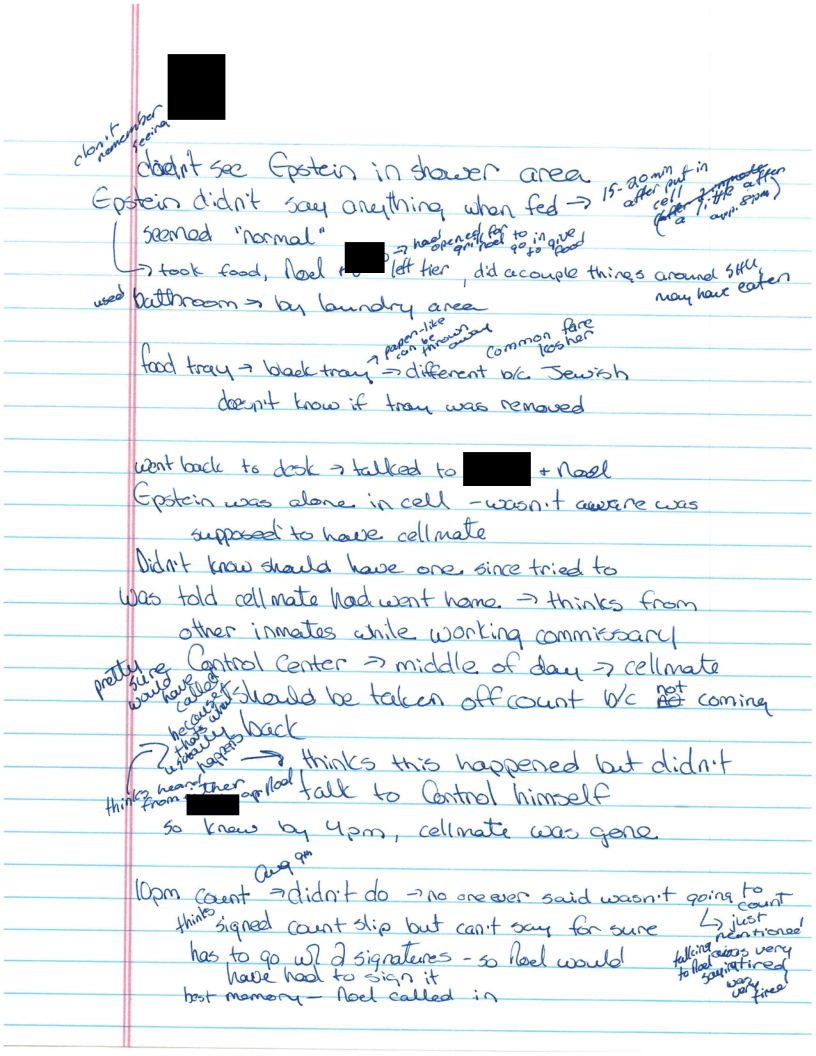 don't
remember
seeing
doesn't see Epstein in shower area
Epstein didn't say anything when fed → 15-20 min put in
after
cell
a little after
app. 8pm)
seemed "normal"
→ had
opened for
Noel to
go in
to give
food
→ took food, Noel + left tier, did a couple things around SHU,
may have eaten
used bathroom → by laundry area
→ paper-like
can be
thrown
away
Common fare
kosher
food tray → black tray → different b/c Jewish
doesn't know if tray was removed
went back to desk → talked to + Noel
Epstein was alone in cell - wasn't aware was
supposed to have cellmate
Didn't know should have one since tried to
was told cellmate had went home → thinks from
other inmates while working commissary
pretty
sure
would
have
called
because
that's what
usually
happens
Control Center → middle of day → cellmate
should be taken off count b/c not coming
back
→ thinks this happened but didn't
thinks heard
from
talk to Control himself
so knew by 4pm, cellmate was gone
Aug 9th
10pm count → didn't do → no one ever said wasn't going to
count
↳ just
mentioned
was very
tired
talking
to Noel
saying
was
very
tired
thinks signed count slip but can't say for sure
has to go w/ 2 signatures - so Noel would
have had to sign it
best memory - Noel called in